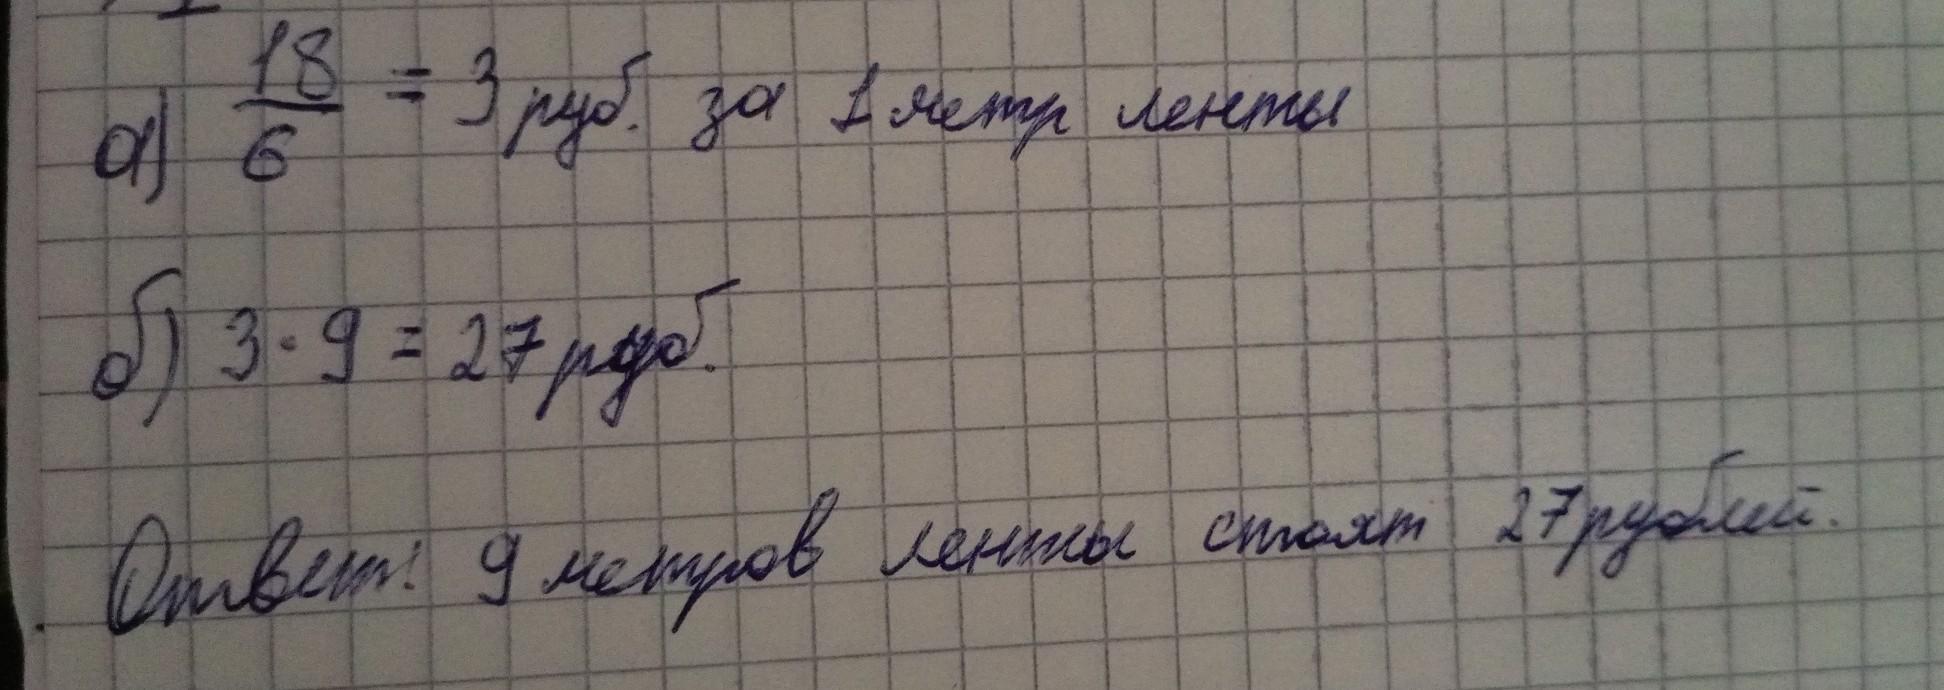 а) 18/6 = 3 руб. за 1 метр ленты
б) 3 · 9 = 27 руб.
Ответ: 9 метров ленты стоят 27 рублей.